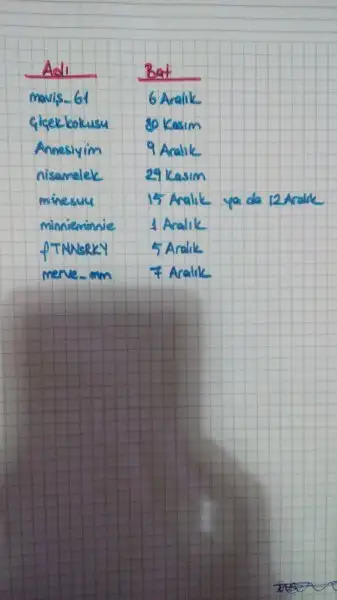 Adı Bat
maviş_61 6 Aralık
Çiçekkokusu 30 Kasım
Annesiyim 9 Aralık
nisamelek 29 Kasım
minesuu 15 Aralık ya da 12 Aralık
minnieminnie 1 Aralık
fTNNSRKY 5 Aralık
merve_mm 7 Aralık